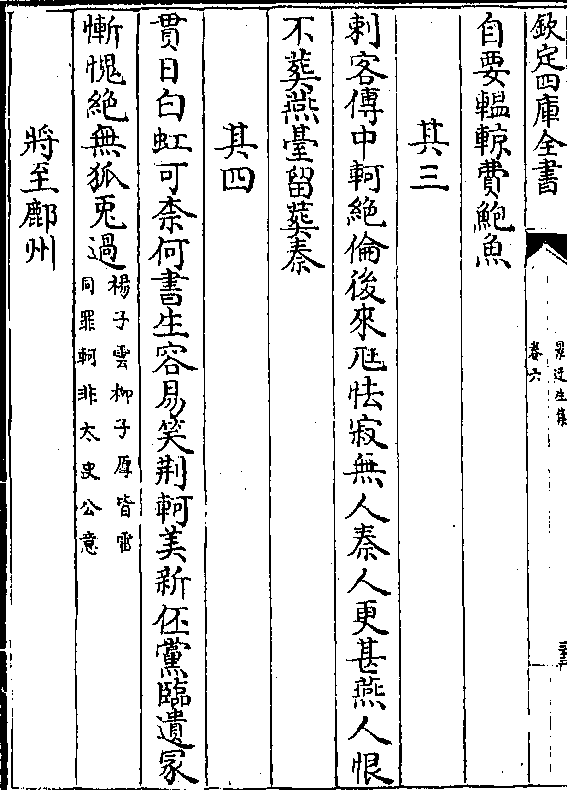 欽定四庫全書
景迂生集
卷六
自要輼輬費鮑魚
其三
刺客傳中軻絶倫後來尫怯寂無人秦人更甚燕人恨
不葬燕臺留葬秦
其四
貫日白虹可柰何書生容易笑荆軻美新伾黨臨遺冢
慚愧絶無狐兎過
楊子雲柳子厚皆雷
同罪軻非太史公意
將至鄜州